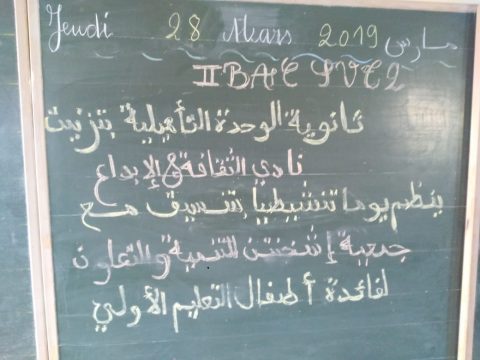 Jeudi 28 Mars 2019 مارس
II BAC SVT 2
ثانوية الوحدة التأهيلية بتزنيت
نادي الثقافة و الإبداع
ينظم يوما تنشيطيا بتنسيق مع
جمعية للتنمية والتعاون
لفائدة أطفال التعليم الأولي